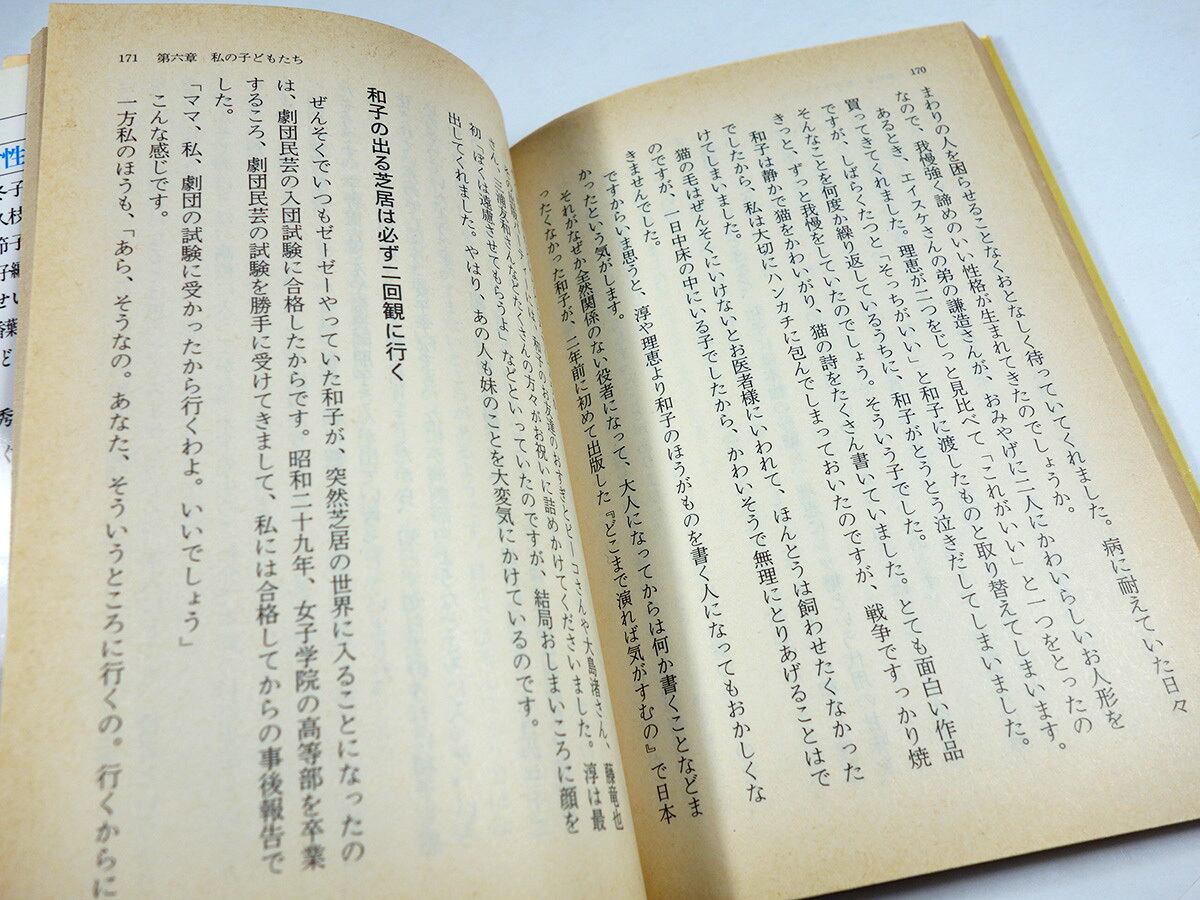 170
まわりの人を困らせることなくおとなしく待っていてくれました。病に耐えていた日々
なので、我慢強く諦めのいい性格が生まれてきたのでしょうか。
あるとき、エイスケさんの弟の謙造さんが、おみやげに二人にかわいらしいお人形を
買ってきてくれました。理恵が二つをじっと見比べて「これがいい」と一つをとったの
ですが、しばらくたつと「そっちがいい」と和子に渡したものと取り替えてしまいます。
そんなことを何度か繰り返しているうちに、和子がとうとう泣きだしてしまいました。
きっと、ずっと我慢をしていたのでしょう。そういう子でした。
和子は静かで猫をかわいがり、猫の詩をたくさん書いていました。とても面白い作品
でしたから、私は大切にハンカチに包んでしまっておいたのですが、戦争ですっかり焼
けてしまいました。
猫の毛はぜんそくにいけないとお医者様にいわれて、ほんとうは飼わせたくなかった
のですが、一日中床の中にいる子でしたから、かわいそうで無理にとりあげることはで
きませんでした。
ですからいま思うと、淳や理恵より和子のほうがものを書く人になってもおかしくな
かったという気がします。
それがなぜか全然関係のない役者になって、大人になってからは何か書くことなどま
ったくなかった和子が、二年前に初めて出版した『どこまで演れば気がすむの』で日本
171 第六章 私の子どもたち
和子のお友達のおすぎとピーコさんや大島渚さん、藤竜也
さん、三浦友和さんなどたくさんの方々がお祝いに詰めかけてくださいました。淳は最
初「ぼくは遠慮させてもらうよ」などといっていたのですが、結局おしまいころに顔を
出してくれました。やはり、あの人も妹のことを大変気にかけているのです。
和子の出る芝居は必ず二回観に行く
ぜんそくでいつもゼーゼーやっていた和子が、突然芝居の世界に入ることになったの
は、劇団民芸の入団試験に合格したからです。昭和二十九年、女子学院の高等部を卒業
するころ、劇団民芸の試験を勝手に受けてきまして、私には合格してからの事後報告で
した。
「ママ、私、劇団の試験に受かったから行くわよ。いいでしょう」
こんな感じです。
一方私のほうも、「あら、そうなの。あなた、そういうところに行くの。行くからに
性